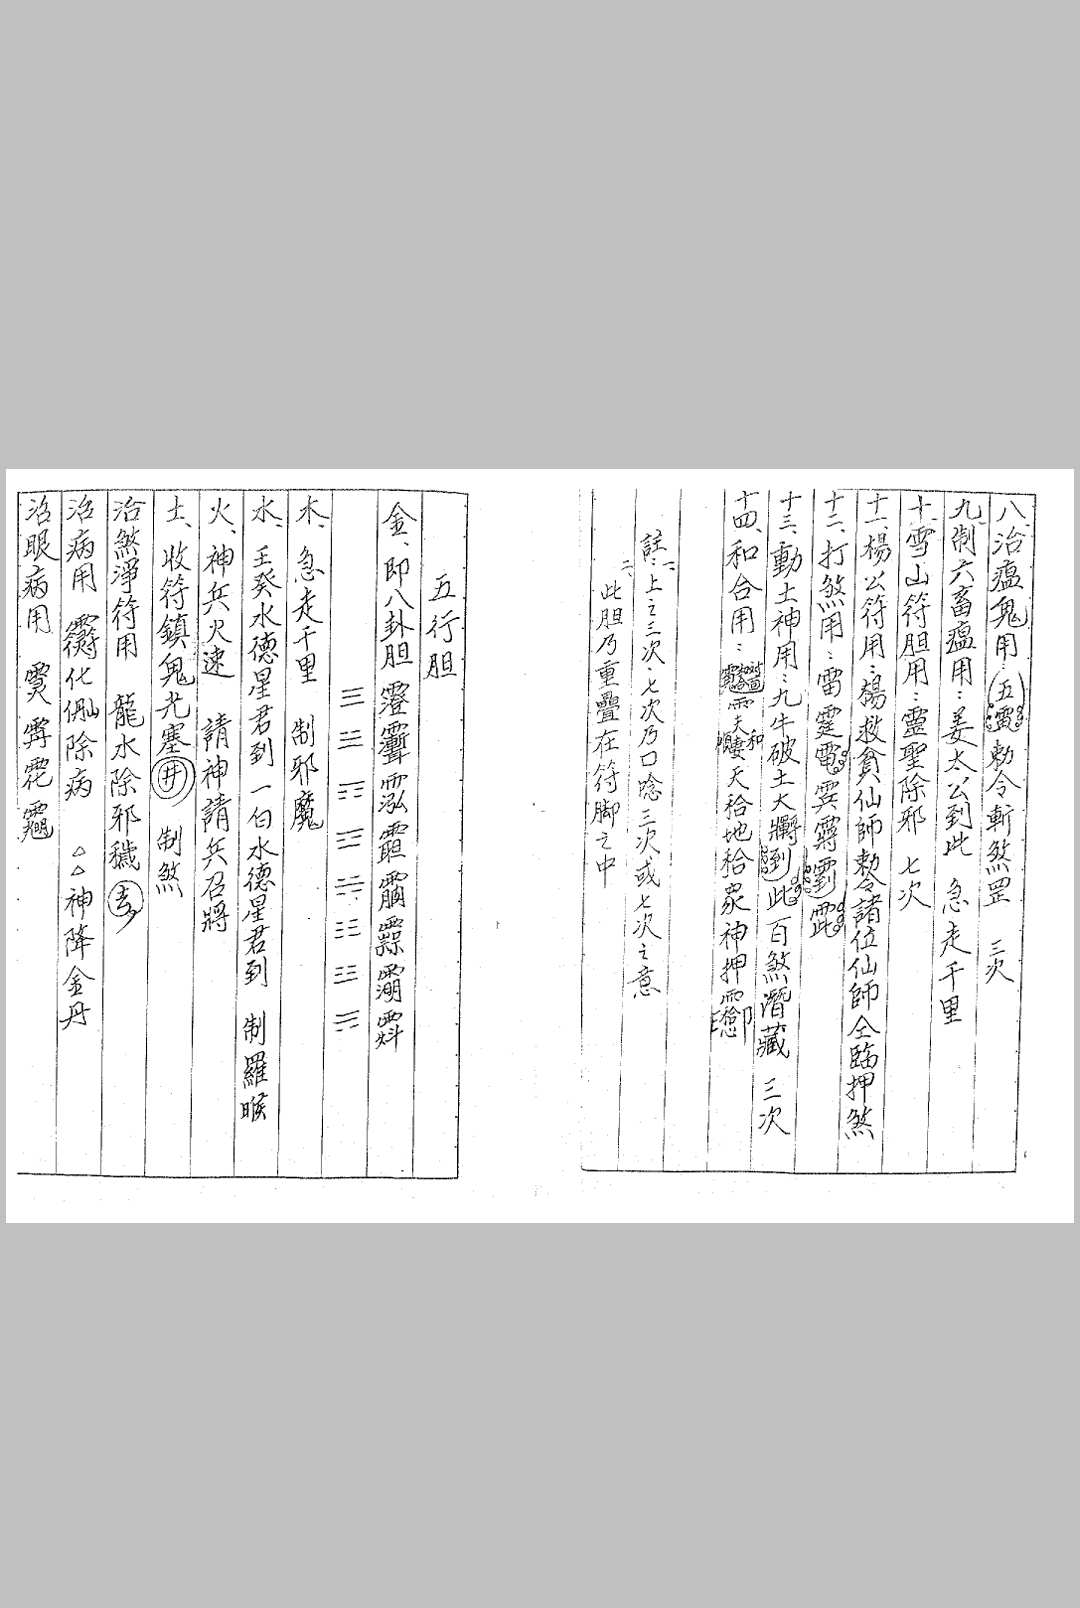 八、治瘟鬼用：五雷勅令斬煞罡 三次
九、制六畜瘟用：姜太公到此 急走千里
十、雪山符胆用：靈聖除邪 七次
十一、楊公符用：楊救貧仙師勅令諸位仙師仝臨押煞
十二、打煞用：雷霆
十三、動土神用：九牛破土大到此百煞潛藏 三次
十四、和合用：天和妻天袷地袷眾神押
註：一、上之三次·七次乃口唸三次或七次之意
二、此胆乃重疊在符脚之中
五行胆
金、即八卦胆
☰ ☱ ☳
木、急走千里 制邪魔
水、壬癸水德星君到 一白水德星君到 制羅睺
火、神兵火速 請神請兵召將
土、收符鎮鬼光塞井 制煞
治煞淨符用 龍水除邪穢
治病用 化除病 △△神降金丹
治眼病用